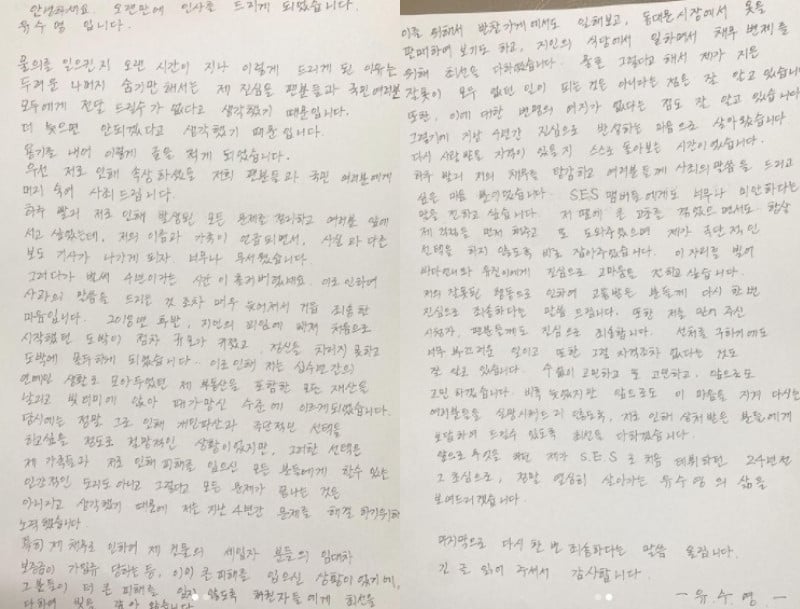 안녕하세요. 오랜만에 인사를 드리게 되었습니다.
유수영 입니다.
물의를 일으킨지 오랜 시간이 지나 이렇게 드리게 된 이유는
두려운 나머지 숨기만 해서는 제 진심을 팬분들과 국민 여러분
모두에게 전달 드릴수가 없다고 생각했기 때문입니다.
더 늦으면 안되겠다고 생각했기 때문입니다.
용기를 내어 이렇게 글을 적게 되었습니다.
우선 저로 인해 속상하셨을 저희 팬분들과 국민 여러분에게
머리 숙여 사죄드립니다.
하루 빨리 저로 인해 발생된 모든 문제를 정리하고 여러분 앞에
서고 싶었는데, 저의 이름과 가족이 언급되면서, 사실과 다른
보도 기사가 나가게 되자 너무나 무서웠습니다.
그러다가 벌써 4년이라는 시간이 흘러버렸네요. 이로 인하여
사과의 말씀을 드리는 것 조차 매우 늦어져서 거듭 죄송한
마음입니다. 2018년 후반, 지인의 꾀임에 빠져 처음으로
시작했던 도박이 점차 규모가 커졌고, 정신을 차리지 못하고
도박에 몰두하게 되었습니다.. 이로 인해 저는 십수년간의
연예인 생활로 모아두었던 제 부동산을 포함한 모든 재산을
날리고 빚더미에 앉아 패가망신 수준에 이르게되었습니다.
당시에는 정말 그로 인해 개인파산과 극단적인 선택을
하고싶을 정도로 절망적인 상황이었지만, 그러한 선택은
제 가족들과 저로 인해 피해를 입으신 모든 분들에게 할수 있는
인간적인 도리도 아니고 그렇다고 모든 문제가 끝나는 것은
아니라고 생각했기 때문에 저는 지난 4년간 문제를 해결하기위하여
노력했습니다.
특히 제 채무로 인하여 제 건물의 세입자 분들의 임대차
보증금이 가압류 당하는 등, 이미 큰 피해를 입으신 상황이 있기에,
그분들이 더 큰 피해를 입지 않도록 채권자들에게 최선을
다하여 빚을 갚아 왔습니다.
이를 위해서 반찬가게에서도 일해보고, 동대문시장에서 옷을
판매하여 보기도 하고, 지인의 식당에서 일하면서 채무 변제를
위해 최선을 다하였습니다. 물론 그렇다고 해서 제가 지은
잘못이 모두 없던 일이 되는 것은 아니라는 점은 잘 알고 있습니다
또한, 이에 대한 변명의 여지가 없다는 점도 잘 알고 있습니다
그렇기에 지난 4년간 진심으로 반성하는 마음으로 살아왔습니다
다시 사랑받을 자격이 있을지 스스로 돌아보는 시간이었습니다.
하루 빨리 저의 채무를 탕감하고 여러분들께 사죄의말씀을 드리고
싶은 마음 뿐이었습니다. SES 멤버들에게도 너무나 미안하다는
말을 전하고 싶습니다. 저 땜에 큰 고초를 겪었으면서도 항상
제 걱정을 먼저 해주고 또 도와주었으며 제가 극단적인
선택을 하지 않도록 바로 잡아주었습니다. 이 자리를 빌어
바다언니와 유진이에게 진심으로 고마움을 전하고 싶습니다.
저의 잘못된 행동으로 인하여 고통받은 분들게 다시 한번
진심으로 죄송하다는 말씀 드립니다. 또한 저를 믿어 주신
시청자, 팬분들께도 진심으로 죄송합니다. 선처를 구하기에도
너무 부끄러운 일이고 또한 그럴 자격조차 없다는 것도
잘 알고 있습니다. 수없이 고민하고 또 고민하고, 앞으로도
고민 하겠습니다. 비록 늦었지만 앞으로도 이 마음을 지켜 다시는
여러분들을 실망시켜드리지 않도록, 저로 인해 상처 받은 분들에게
보답하여 드릴수 있도록 최선을 다하겠습니다.
앞으로 무엇을 하던 제가 S.E.S 로 처음 데뷔하던 24년전
그 초심으로, 정말 열심히 살아가는 유수영의 삶을
보여드리겠습니다.
마지막으로 다시 한 번 죄송하다는 말씀 올립니다.
긴 글 읽어 주셔서 감사합니다.
- 유.수.영 -